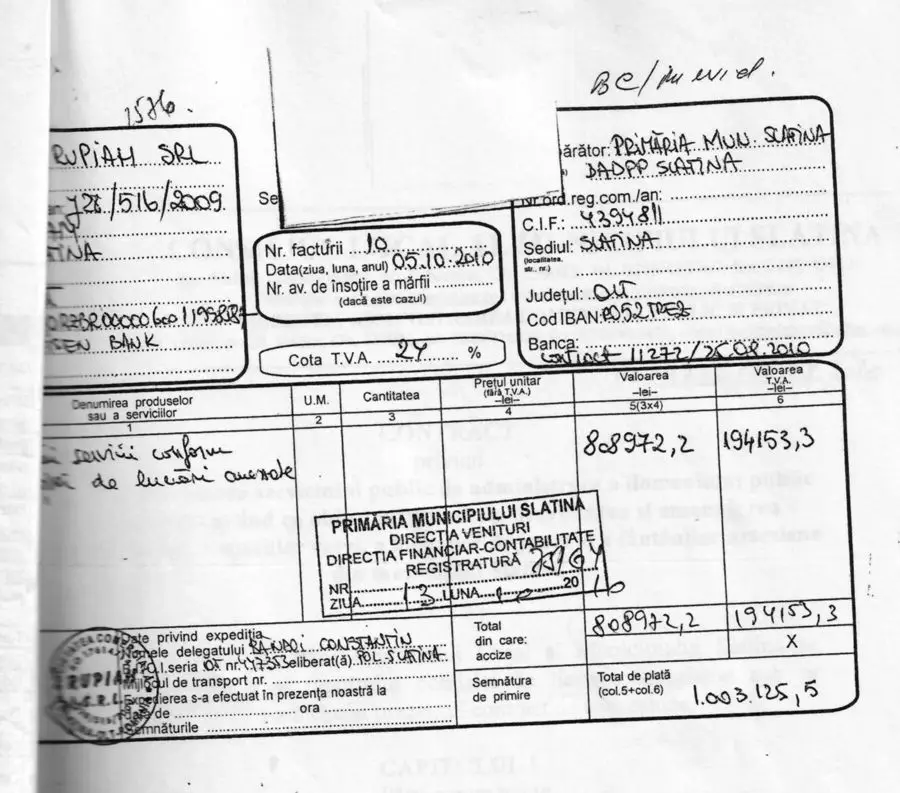 1586.
RUPIAH SRL
J28/516/2009
TINA
BANK
Se
Nr. facturii 10
Data(ziua, luna, anul) 05.10.2010
Nr. av. de însoțire a mărfii
(dacă este cazul)
Cota T.V.A. 24 %
ărător: PRIMĂRIA MUN. SLATINA
DADPP SLATINA
Nr.ord.reg.com./an:
C.I.F.: 4394811
Sediul: SLATINA
(localitatea, str., nr.)
Județul: OLT
Cod IBAN:
Banca:
contract 11272/25.08.2010
Denumirea produselor sau a serviciilor
U.M.
Cantitatea
Prețul unitar (fără T.V.A.) –lei–
Valoarea –lei–
Valoarea T.V.A. –lei–
1 2 3 4 5(3x4) 6
servicii conform 808972,2 194153,3
de lucrări anexate
PRIMĂRIA MUNICIPIULUI SLATINA
DIRECȚIA VENITURI
DIRECȚIA FINANCIAR-CONTABILITATE
REGISTRATURĂ
NR
ZIUA 13 LUNA 10 20 10
Date privind expediția
Numele delegatului CONSTANTIN
B.I./C.I.seria OT nr. eliberat(ă) POL SLATINA
Mijlocul de transport nr.
Expedierea s-a efectuat în prezența noastră la
data de ora
Semnăturile
RUPIAH
S.R.L.
Total din care: accize
808972,2 194153,3
X
Semnătura de primire
Total de plată (col.5+col.6)
1.003.125,5